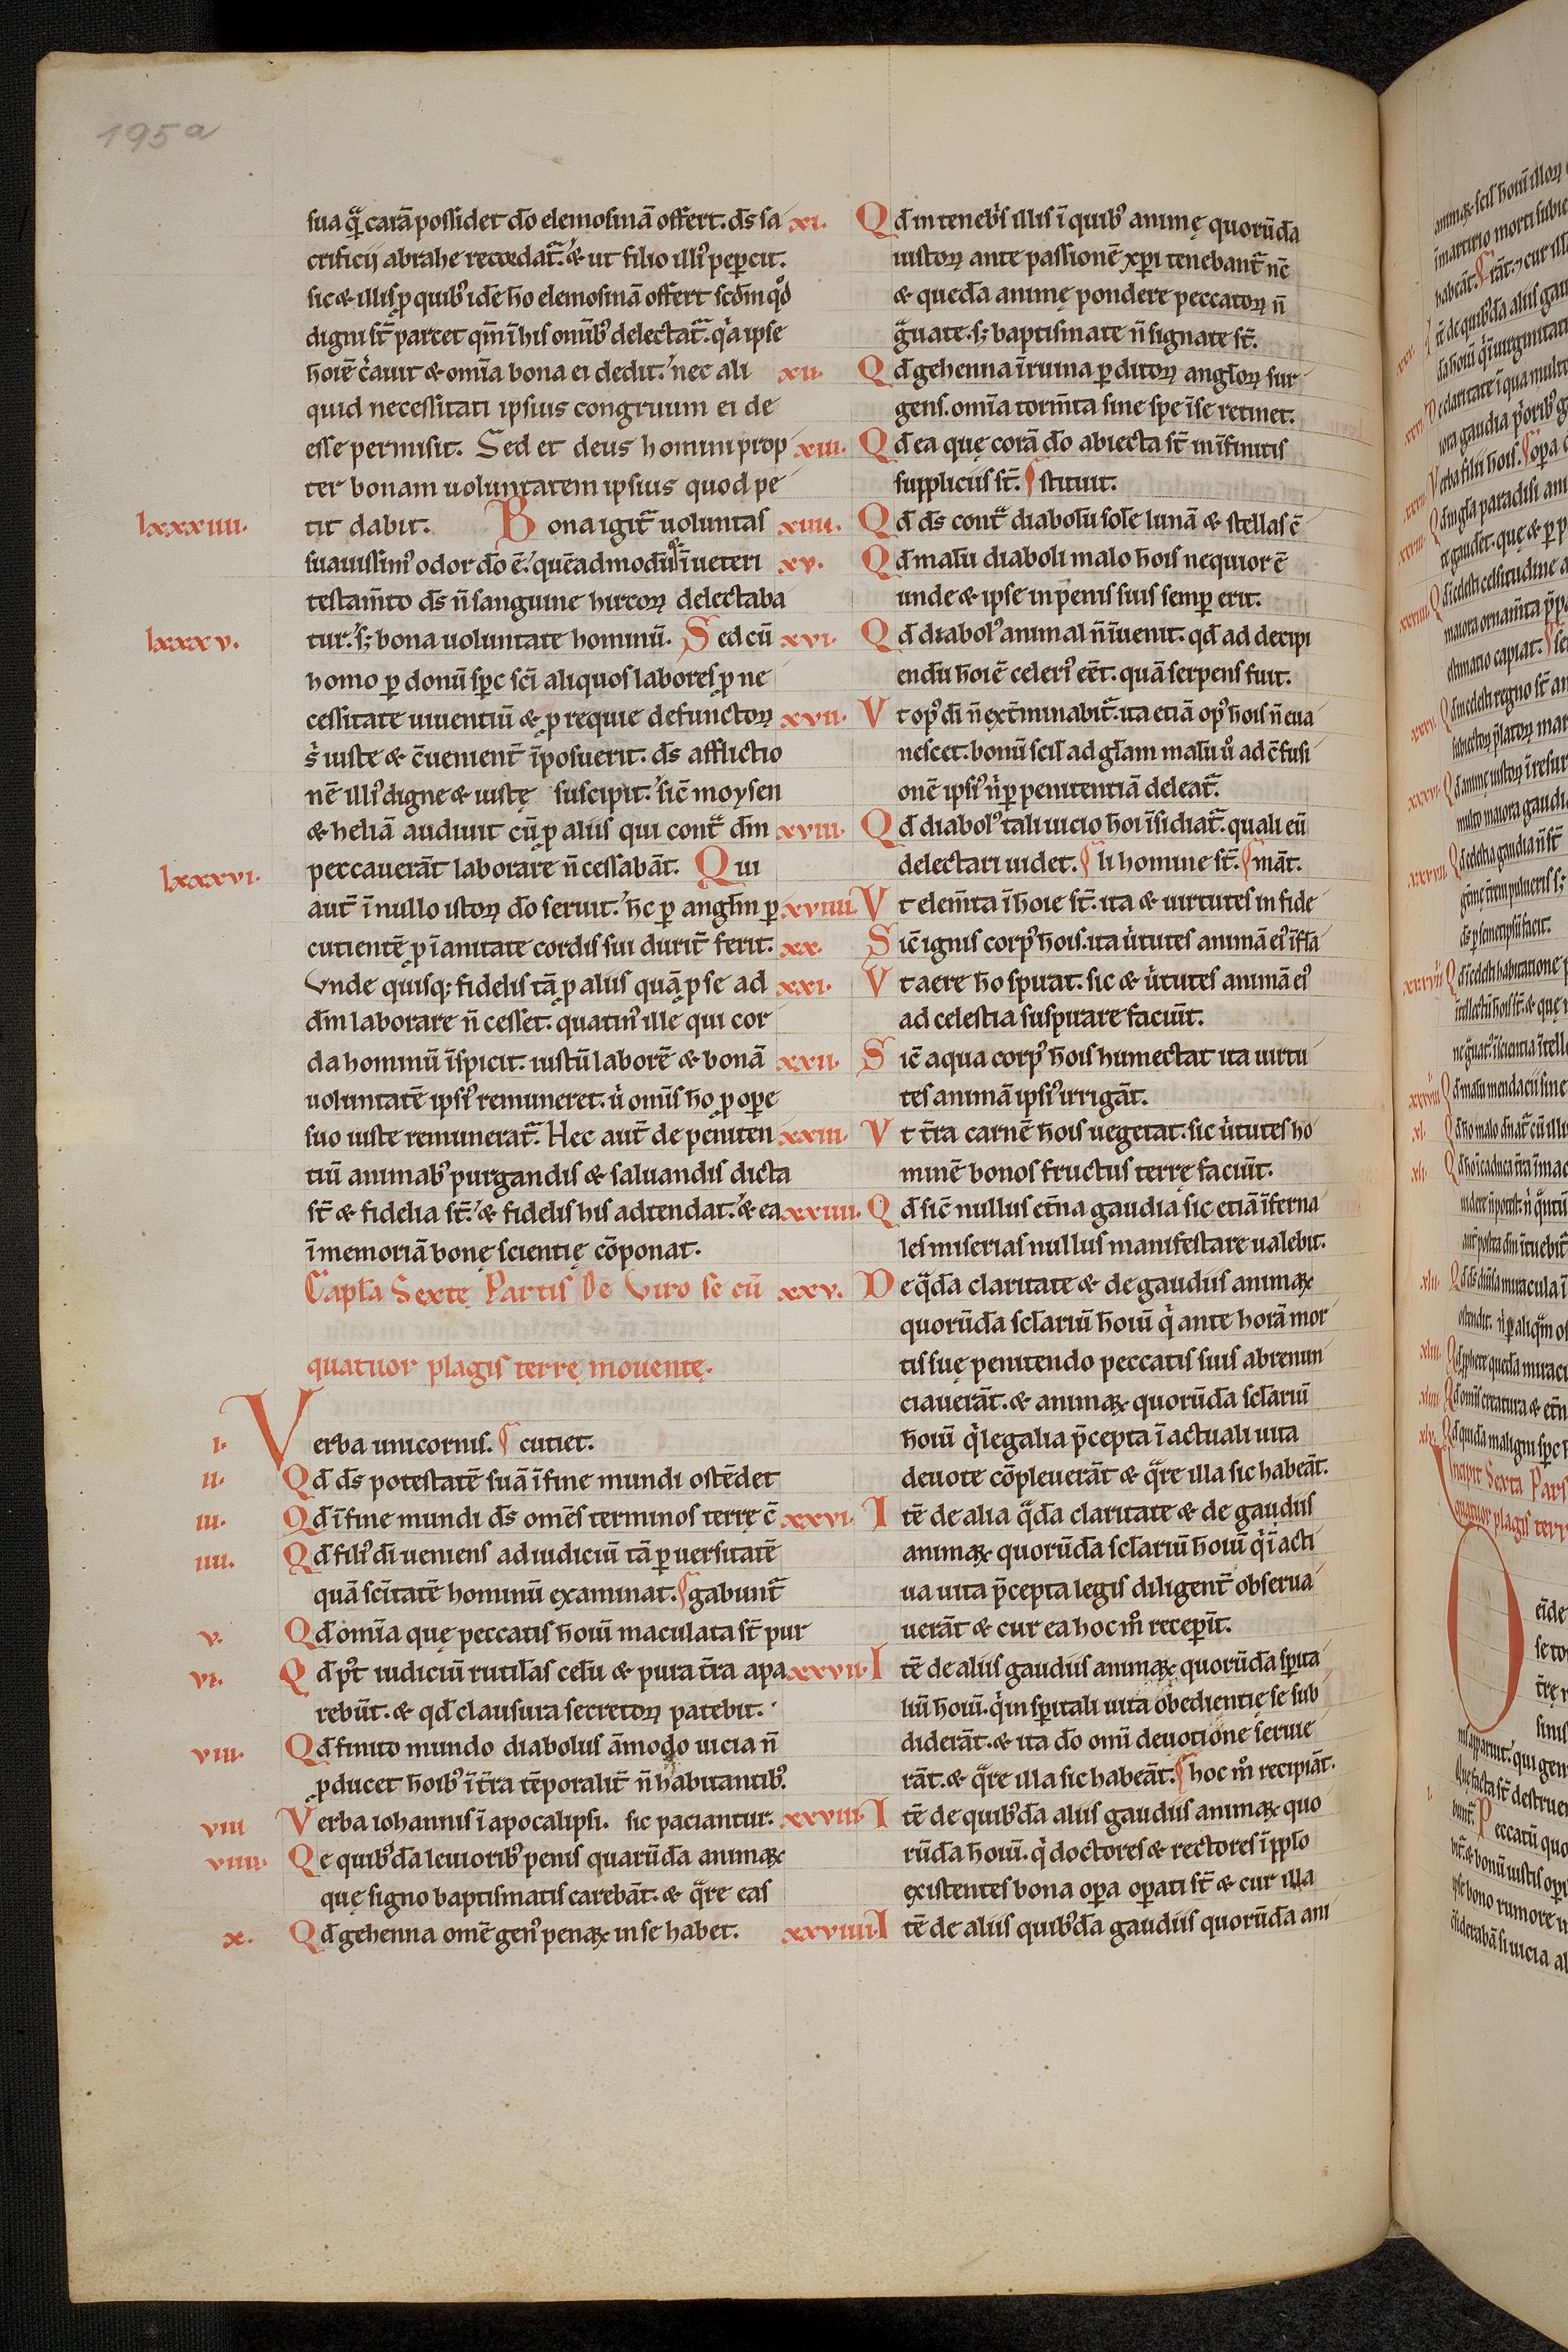 195a
sua qᷓ carā possidet dō elemosinā offert. ds̄ sa
crificij abrahe recordat᷑. & ut filio illiꝰ pepcit.
sic & illis ꝓ quibꝰ idē hō elemosinā offert scdm qͦd
digni st̄ parcet qm̄ ī his omībꝰ delectat᷑. qͥa ipse
hoīē cͥauit & om̄ia bona ei dedit. nec ali
quid necessitati ipsius congruum ei de
esse permisit. Sed et deus homini prop
ter bonam uoluntatem ipsius quod pe
lxxxiiii. tit dabit. Bona igit᷑ uoluntas
suauissimꝰ odor dō ē. quēadmodū ī ueteri
testam̄to ds̄ n̄ sanguine hircoꝝ delectaba
lxxxv. tur. sꝫ bona uoluntate hominū. Sed cū
homo ꝑ donū spc sc̄i aliquos labores ꝓ ne
cessitate uiuentiū & ꝓ requie defunctoꝝ
sͥ iuste & c̄uenient᷑ īposuerit. ds̄ afflictio
nē illiꝰ digne & iustę suscipit. sic̄ moysen
& heliā audiuit cū ꝓ aliis qui contᷓ dm̄
lxxxvi. peccauerāt laborare n̄ cessabāt. Qui
aut̄ ī nullo istoꝝ dō seruit. hc̄ ꝑ angl̄m ꝑ
cutientē ꝓ ī anitate cordis sui durit᷑ ferit.
Vnde quisqꝫ fidelis tā ꝓ aliis quā ꝓ se ad
dm̄ laborare n̄ cesset. quatinꝰ ille qui cor
da hominū īspicit. iustū laborē & bonā
uoluntatē ipsiꝰ remuneret. uͥ omīs hō ꝓ oꝑe
suo iuste remunerat᷑. Hec aut̄ de peniten
tiū animabꝰ purgandis & saluandis dicta
st̄ & fidelia st̄. & fidelis his adtendat. & ea
ī memoriā bonę scientię cōponat.
Capl̄a Sexte Partis De Viro se cū
quatuor plagis terrę mouentę.
i. Verba unicornis. cutiet.
ii. Qd̄ ds̄ potestatē suā ī fine mundi ostēdet
iii. Qd̄ ī fine mundi ds̄ omēs terminos terrę c̄
iiii. Qd̄ filiꝰ dī ueniens ad iudiciū tā ꝑuersitatē
quā sc̄itatē hominū examinat. gabunt᷑
v. Qd̄ om̄ia quę peccatis hoīū maculata st̄ pur
vi. Qd̄ pꝰt iudiciū rutilās celū & pura tr̄a apa
rebūt. & qd̄ clausura secretoꝝ patebit.
vii. Qd̄ finito mundo diabolus āmodo uicia n̄
ꝓducet hoībꝰ ī tr̄a tēporalit᷑ n̄ habitantibꝰ.
viii Verba iohannis ī apocalipsi. sic paciantur.
viiii. Qe quibꝰdā leuioribꝰ penis quarūdā animaꝝ
quę signo baptismatis carebāt. & qᷓre eas
x. Qd̄ gehenna omē genꝰ penaꝝ in se habet.
xi. Qd̄ in tenebͥs illis ī quibꝰ animę quorūdā
iustoꝝ ante passionē xpi tenebant᷑ nc̄
& quedā animę pondere peccatoꝝ n̄
gᷓuate. sꝫ baptismate n̄ signate st̄.
xii. Qd̄ gehenna ī ruina ꝑditoꝝ angl̄oꝝ sur
gens. om̄ia torm̄ta sine spe ī se retinet.
xiii. Qd̄ ea quę corā dō abiecta st̄ in īfinitis
suppliciis st̄. stituit.
xiiii. Qd̄ ds̄ contᷓ diabolū solē lunā & stellas c̄
xv. Qd̄ malū diaboli malo hoīs nequior ē
unde & ipse in penis suis semꝑ erit.
xvi. Qd̄ diabolꝰ animal n̄ īuenit. qd̄ ad decipi
endū hoīē celeriꝰ eēt. quā serpens fuit.
xvii. Vt opꝰ dī n̄ext̄minabit᷑. ita etiā opꝰ hoīs n̄ eua
nescet. bonū scil̄ ad gl̄am malū uͦ ad c̄fusi
onē ipsiꝰ nͥ ꝑ penitentiā deleat᷑.
xviii. Qd̄ diabolꝰ tali uicio hoī īsidiat᷑. quali eū
delectari uidet. li homine st̄. māt.
xviiii. Vt elem̄ta ī hoīe st̄. ita & uirtutes in fide
xx. Sic̄ ignis corpꝰ hoīs. ita uͥtutes animā eiꝰ īflā
xxi. Vt aere hō spirat. sic & uͥtutes animā eiꝰ
ad celestia suspirare faciūt.
xxii. Sic̄ aqua corpꝰ hoīs humectat ita uirtu
tes animā ipsiꝰ irrigāt.
xxiii. Vt tr̄a carnē hoīs uegetat. sic uͥtutes ho
minē bonos fructus terrę faciūt.
xxiiii. Qd̄ sic̄ nullus et̄na gaudia sic etiā īferna
les miserias nullus manifestare ualebit.
xxv. De qᷓdā claritate & de gaudiis animaꝝ
quorūdā scl̄ariū hoīū qͥ ante horā mor
tis suę penitendo peccatis suis abrenun
ciauerāt. & animaꝝ quorūdā scl̄ariū
hoīū qͥ legalia p̄cepta ī actuali uita
deuote cōpleuerāt & qᷓre illa sic habeāt.
xxvi. Itē de alia qᷓdā claritate & de gaudiis
animaꝝ quorūdā scl̄ariū hoīū qͥ ī acti
ua uita p̄cepta legis diligent᷑ obserua
uerāt & cur ea hoc mͦ receꝑīt.
xxvii. Itē de aliis gaudiis animaꝝ quorūdā spīta
liū hoīū. qͥ in spīitali uita obedientię se sub
diderāt. & ita dō omī deuotione seruie
rāt. & qᷓre illa sic habeāt. hoc mͦ recipiāt.
xxviii. Itē de quibꝰdā aliis gaudiis animaꝝ quo
rūdā hoīū. qͥ doctores & rectores ī pplo
existentes bona oꝑa oꝑati st̄ & cur illa
xxviiii. Itē de aliis quibꝰdā gaudiis quorūdā ani